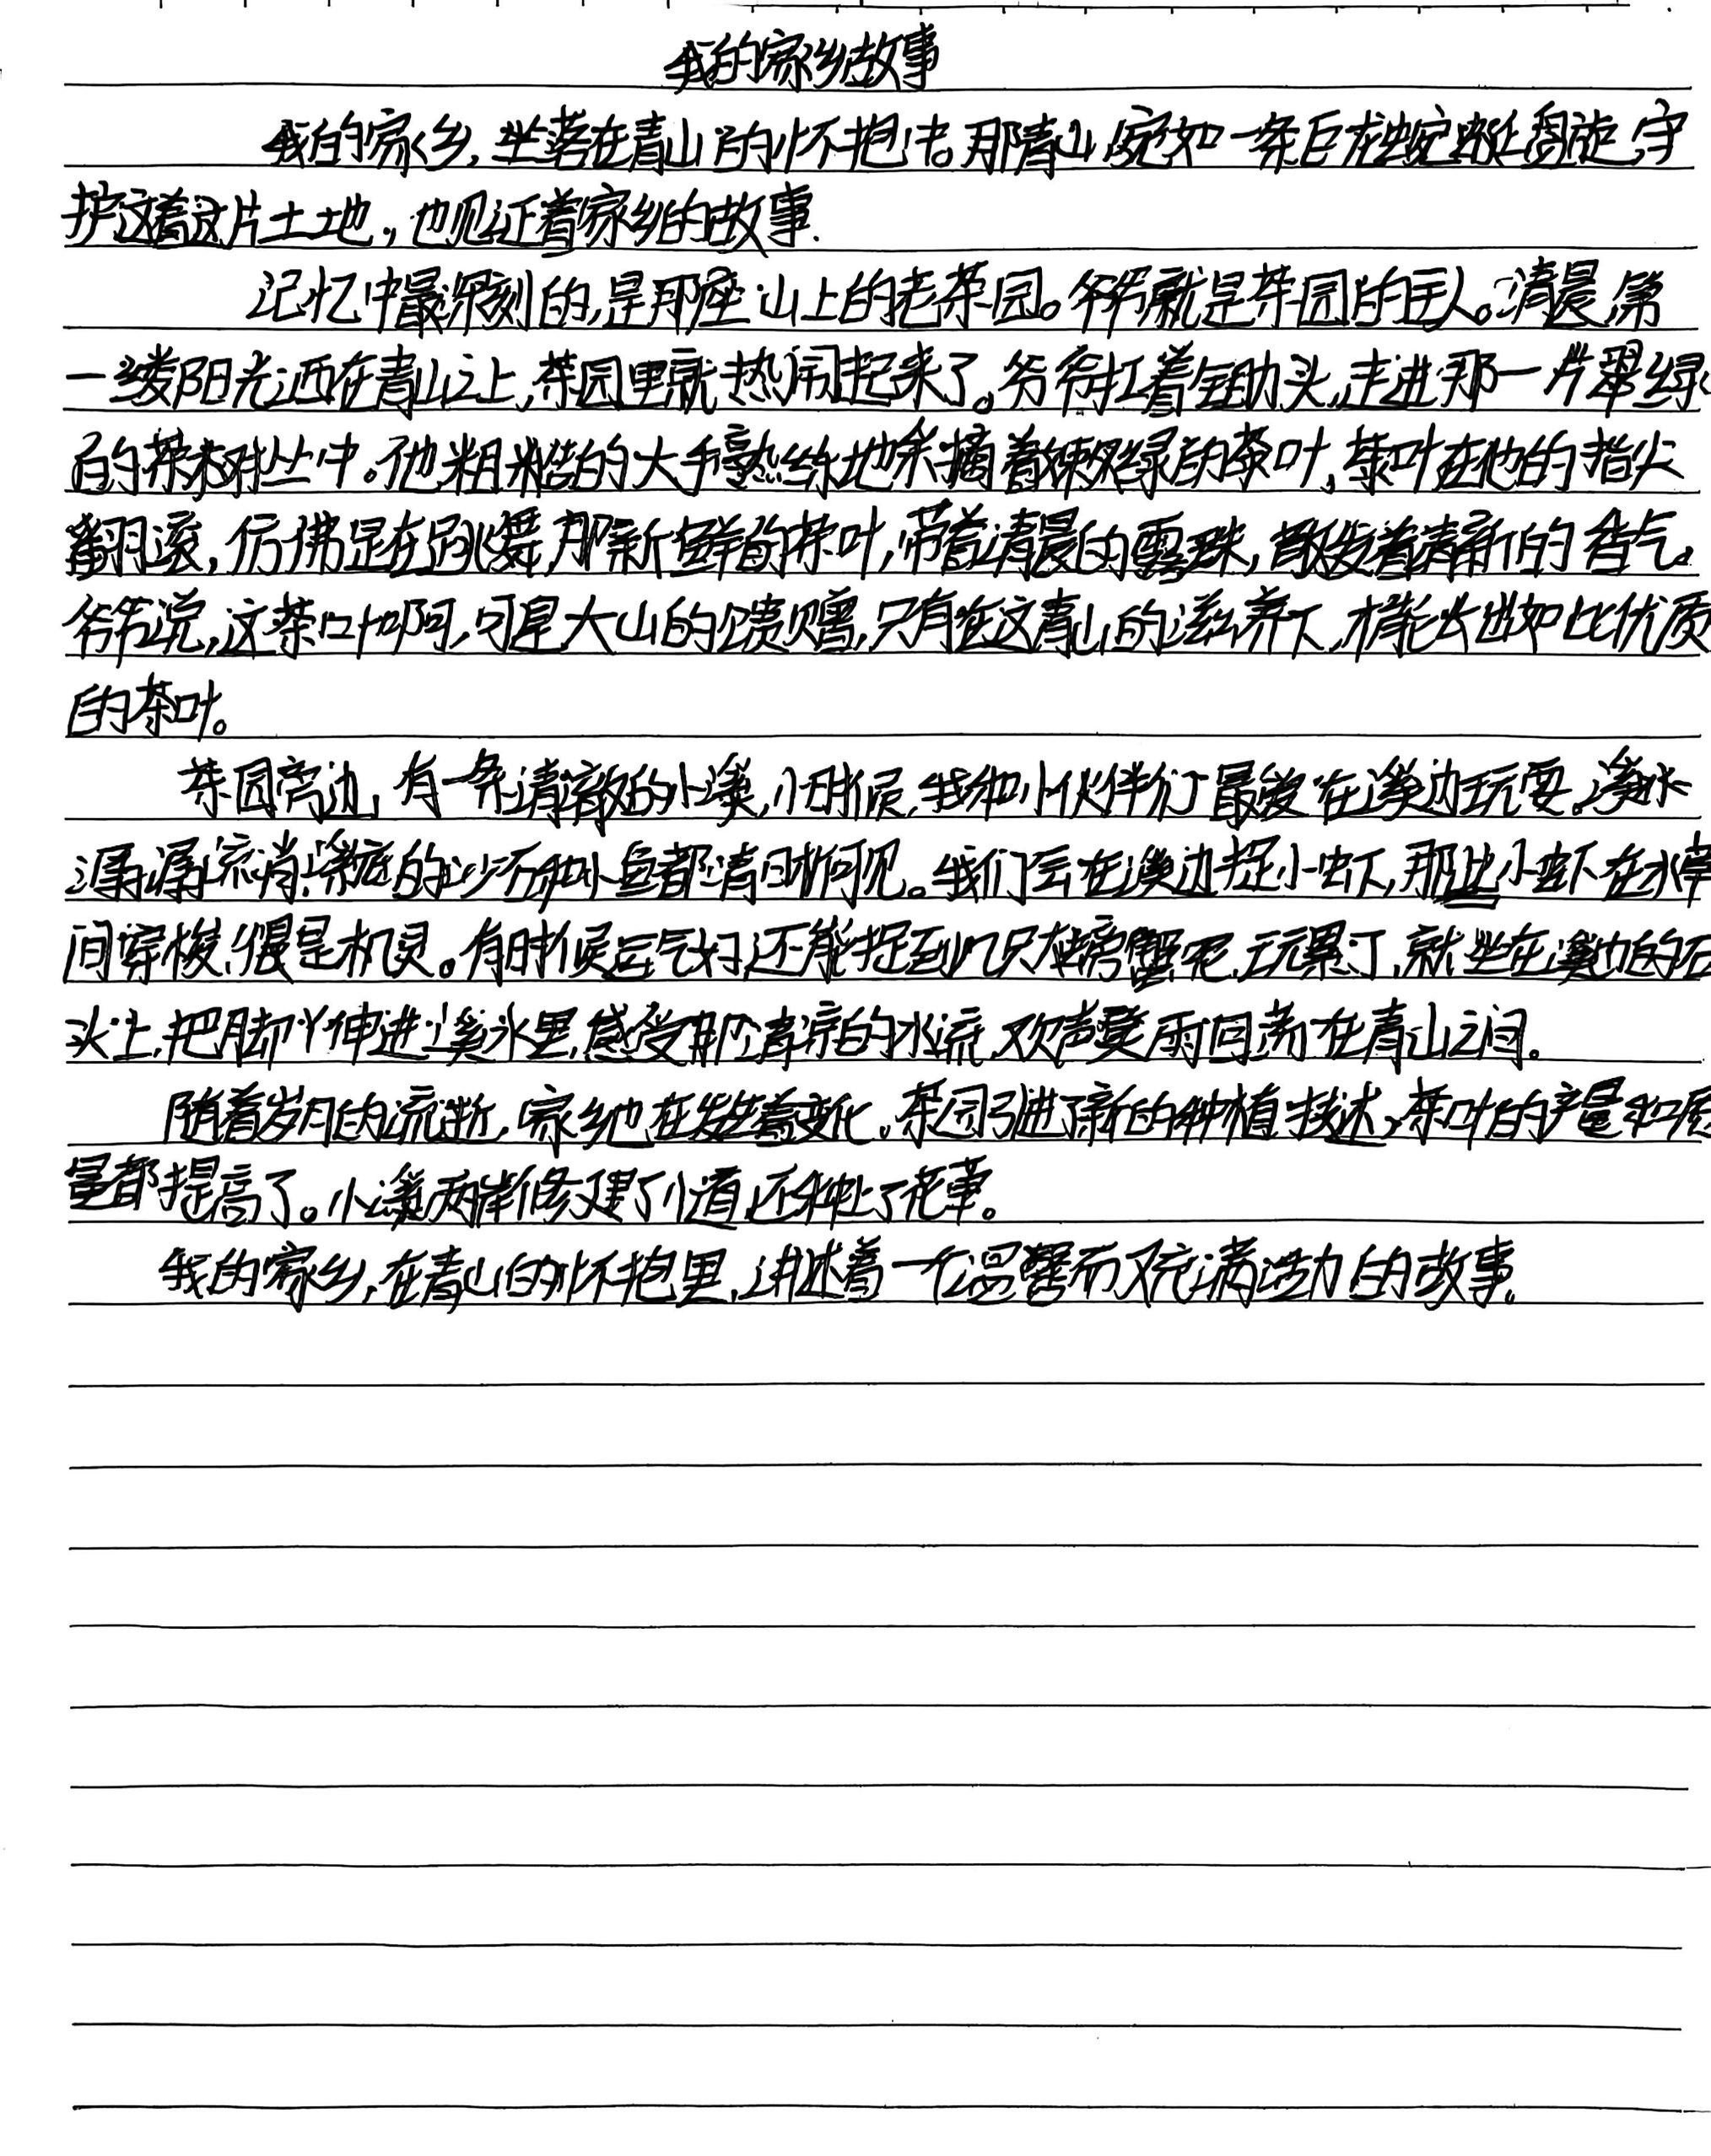 我的家乡故事
我的家乡,坐落在青山的怀抱中。那青山宛如一条巨龙蜿蜒盘旋,守
护这着这片土地,也见证着家乡的故事.
记忆中最深刻的,是那座山上的老茶园。爷爷就是茶园的主人。清晨,第
一缕阳光洒在青山之上,茶园里就热闹起来了。爷爷扛着锄头,走进那一片翠绿
的茶树丛中。他粗糙的大手熟练地采摘着嫩绿的茶叶,茶叶在他的指尖
翻滚,仿佛是在跳舞,那新鲜的茶叶,带着清晨的露珠,散发着清新的香气。
爷爷说,这茶叶啊,可是大山的馈赠,只有在这青山的滋养下,才能长出如此优质
的茶叶。
茶园旁边,有一条清澈的小溪,小时候,我和小伙伴们最爱在溪边玩耍。溪水
潺潺流淌,溪底的沙石和小鱼都清晰可见。我们会在溪边捉小虾,那些小虾在水草
间穿梭,很是机灵。有时候运气好,还能捉到几只大螃蟹呢,玩累了,就坐在溪边的石
头上,把脚丫伸进溪水里,感受那清凉的水流,欢声笑雨回荡在青山之间。
随着岁月的流逝,家乡也在发生着变化。茶园引进了新的种植技述,茶叶的产量和质
量都提高了。小溪两岸修建了小道,还种上了花草。
我的家乡,在青山的怀抱里,讲述着一个温馨而又充满活力的故事。